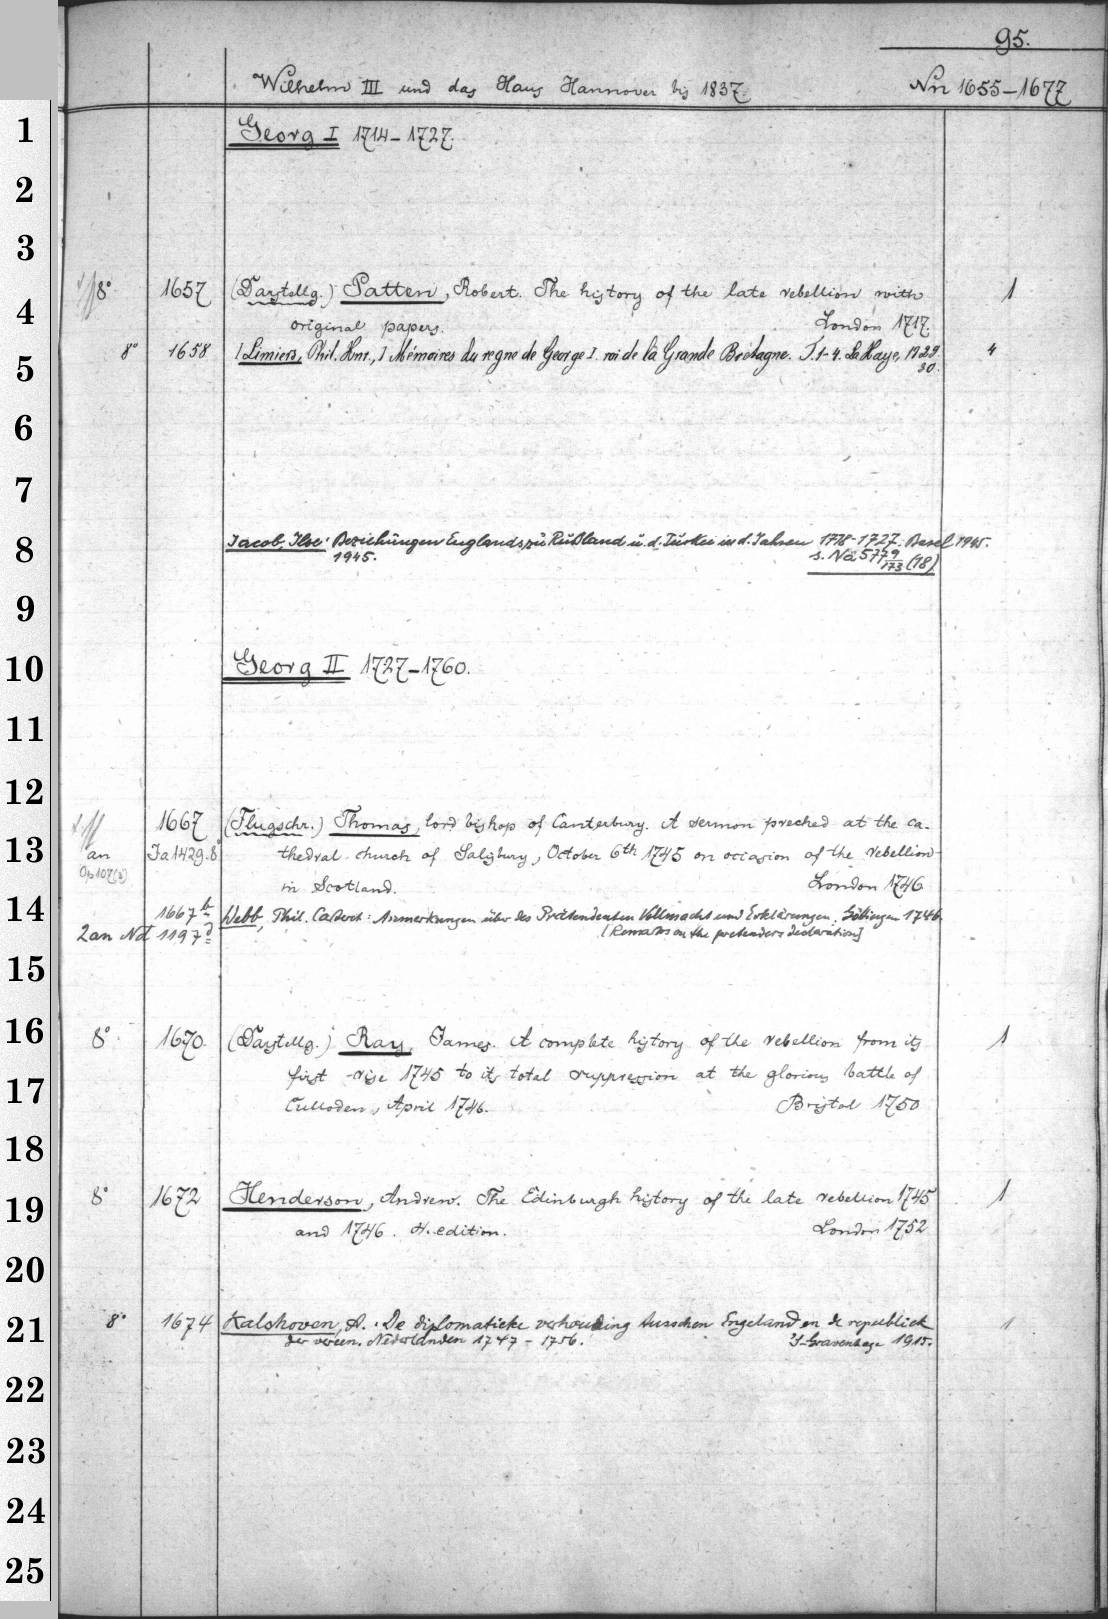 95.
Wilhelm III und das Haus Hannover bis 1837. Nn 1655-1677
1
Georg I 1714-1727.
2
3
8° 1657 (Darstellg.) Patten, Robert. The history of the late rebellion with 1
4
original papers. London 1717.
8° 1658 [Limiers, Phil. Hnr.,] Mémoires du regne de George I. roi de la Grande Bretagne. T. 1-4. La Haye, 1729. 4
30.
5
6
7
Jacob, Ilse: Beziehungen Englands zu Rußland u. d. Türkei in d. Jahren 1718-1727. Basel 1945.
8
1945. s. Nä 5779/173 (18)
9
10
Georg II 1727-1760.
11
12
1667 (Flugschr.) Thomas, lord bishop of Canterbury. A sermon preched at the ca-
13
an Ja 1429.8° thedral church of Salisbury, October 6th 1745 on occasion of the rebellion
in Scotland. London 1746
14
1667 b Webb, Phil. Carteret: Anmerkungen über des Prätendenten Vollmacht und Erklärungen. Göttingen 1746.
2 an Nd 1197 d [Remarks on the pretenders declaration]
15
16
8° 1670. (Darstellg.) Ray, James. A complete history of the rebellion from its 1
first rise 1745 to its total suppression at the glorious battle of
17
Culloden, April 1746. Bristol 1750
18
8° 1672 Henderson, Andrew. The Edinburgh history of the late rebellion 1745 1
19
and 1746. 4. edition. London 1752
20
8° 1674 Kalshoven, A.: De diplomatieke verhouding tusschen Engeland en de republiek 1
21
der vereen. Nederlanden 1747-1756. 's-Gravenhage 1915.
22
23
24
25